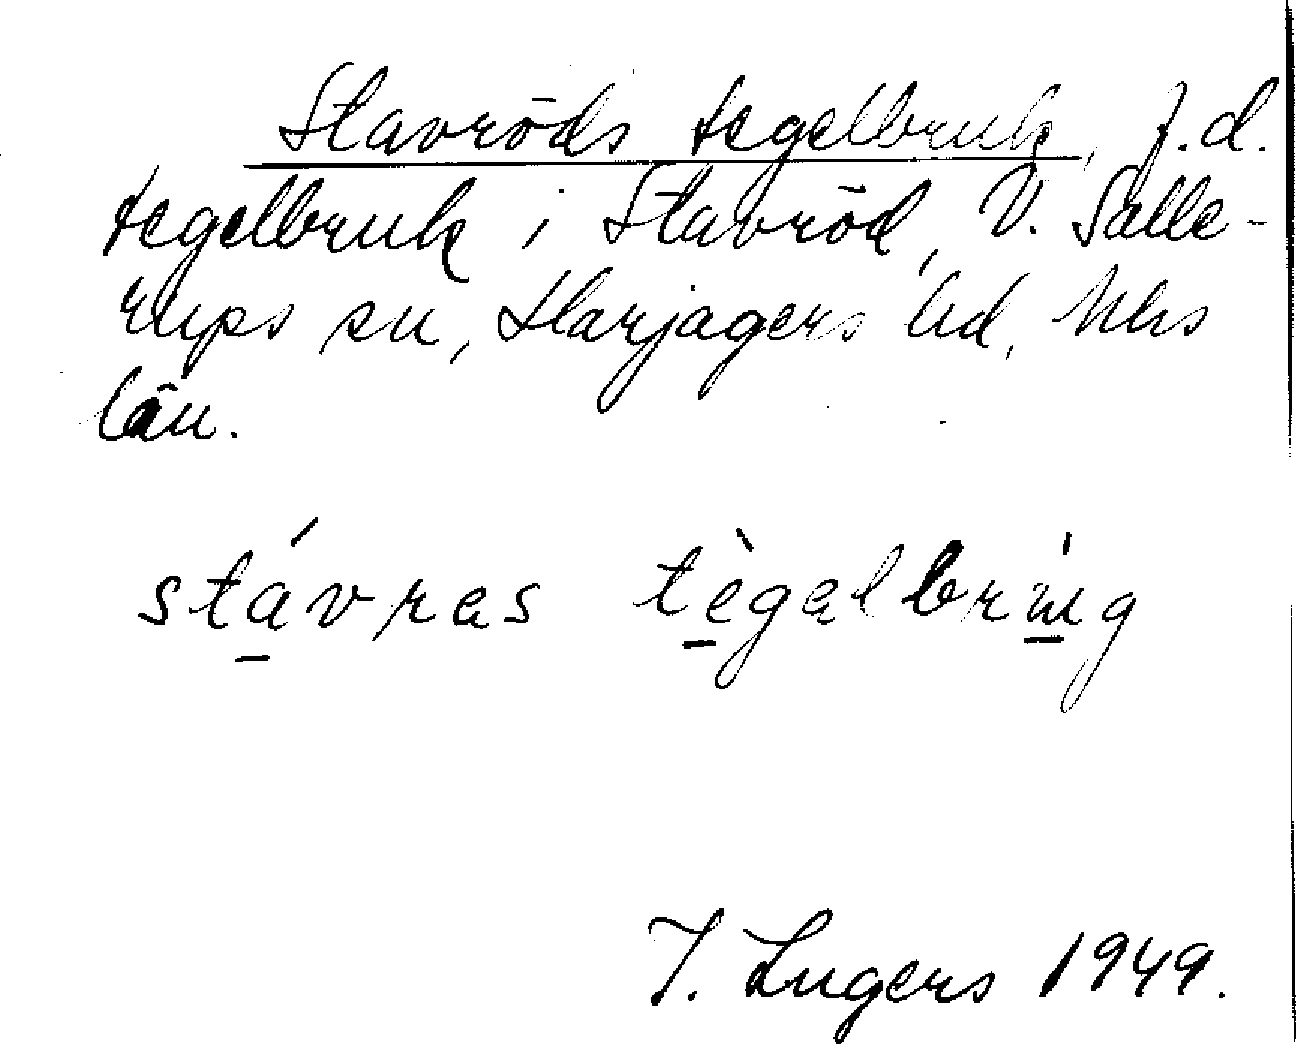 Stavröds tegelbruk, f.d.
tegelbruk i Stavröd, V. Salle-
rups sn, Harjagers hd, Mlhs
län.
stávras tègalbrúg
I. Lugers 1949.